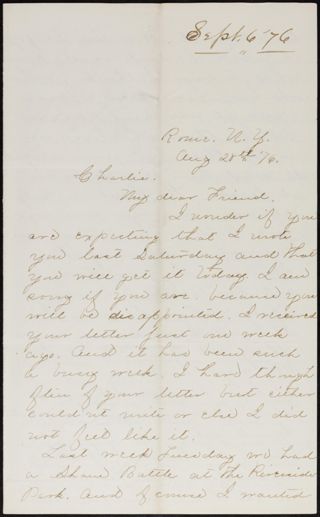 Sept. 6 '76
"
Rome. N.Y.
Aug 28th 76.
Charlie.
My dear Friend.
I wonder if you
are expecting that I wrote
you last Saturday and that
you will get it today. I am
sorry if you are. because you
will be disappointed. I received
your letter just one week
ago. And it has been such
a busy week. I have though
often of your letter but either
could nt write or else I did
not feel like it.
Last week Tuesday we had
a Sham Battle at the Riverside
Park. And of course I wanted